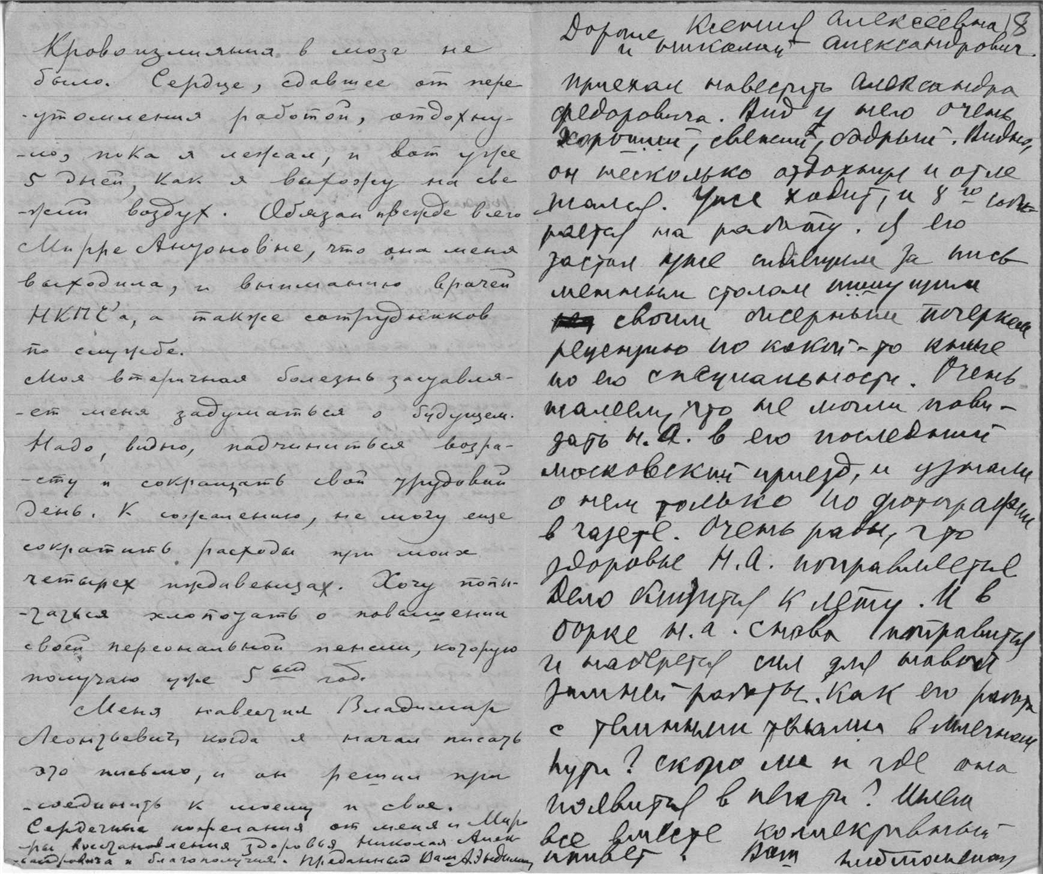 Кровоизлияния в мозг не
было. Сердце, сдавшее от пере
-утомления работой, отдохну-
-ло, пока я лежал, и вот уже
5 дней, как я выхожу на све
-жий воздух. Обязан прежде всего
Мирре Антоновне, что она меня
выходила, и вниманию врачей
НКПС'а, а также сотрудников
по службе.
Моя вторичная болезнь заставля-
-ет меня задуматься о будущем.
Надо, видно, подчиниться возра-
-сту и сокращать свой трудовой
день. К сожалению, не могу еще
сократить расходы при моих
четырех иждивенцах. Хочу попы-
-таться хлопотать о повышении
своей персональной пенсии, которую
получаю уже 5ый год.
Меня навестил Владимир
Леонтьевич, когда я начал писать
это письмо, и он решил при
-соединить к моему и свое.
Сердечные пожелания от меня и Мир
-ры восстановления здоровья Николая Алек
-сандровича и благополучия. Преданный Вам
Дорогие Ксения Алексеевна 18
и Николай Александрович.
Приехал навестить Александра
Федоровича. Вид у него очень
хороший, свежий, бодрый. Видно,
он несколько отдохнул и отле
жался. Уже ходит, и 8го соби-
рается на работу. Я его
застал уже сидящим за пись
менным столом пишущим
своим бисерным почерком
рецензию по какой-то книге
по его специальности. Очень
жалеем, что не могли пови-
дать Н.А. в его последний
московский приезд, и узнали
о нем только по фотографии
в газете. Очень рады, что
здоровье Н.А. поправляется
Дело близится к лету. И в
Борке Н.А. снова поправится
и наберется сил для новой
зимней работы. Как его работа
с темными телами в млечном
пути? Скоро ли и где она
появится в печати? Шлем
все вместе коллективный
привет. Ваш